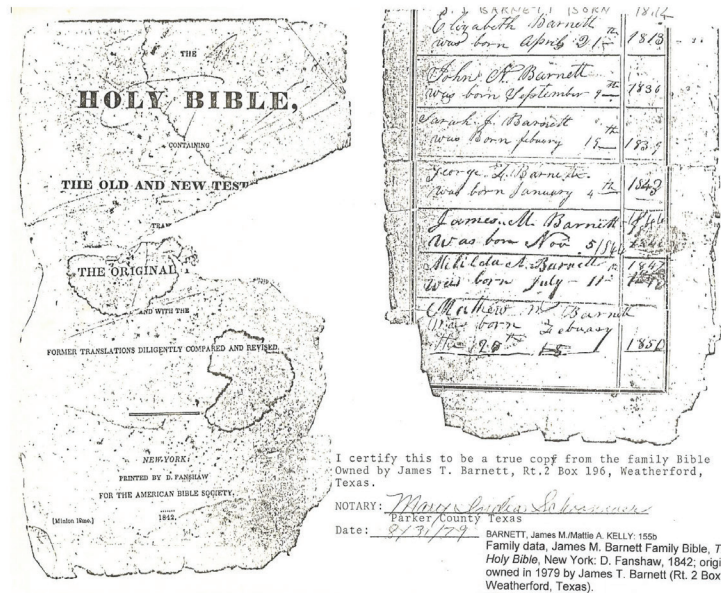 THE
HOLY BIBLE,
CONTAINING
THE OLD AND NEW TEST
TRA
THE ORIGINAL
AND WITH THE
FORMER TRANSLATIONS DILIGENTLY COMPARED AND REVISED.
NEW-YORK:
PRINTED BY D. FANSHAW
FOR THE AMERICAN BIBLE SOCIETY,
1842.
[Minion 12mo.]
BARNETT BORN
Elizabeth Barnett
was born April 21 1813
John Barnett
was born September 9th 1836
Sarah J. Barnett
was Born febuary 15th 183
George Barnett
was born January 4th
James. M. Barnett
was born Nov. 5
A. Barnett
was born July 11
Mathew Barnett
Was born Febuary
The 1850
I certify this to be a true copy from the family Bible
Owned by James T. Barnett, Rt.2 Box 196, Weatherford,
Texas.
NOTARY: Mary
Parker County Texas
Date: 8/31/79
BARNETT, James M./Mattie A. KELLY: 155b
Family data, James M. Barnett Family Bible, T
Holy Bible, New York: D. Fanshaw, 1842; origi
owned in 1979 by James T. Barnett (Rt. 2 Box
Weatherford, Texas).